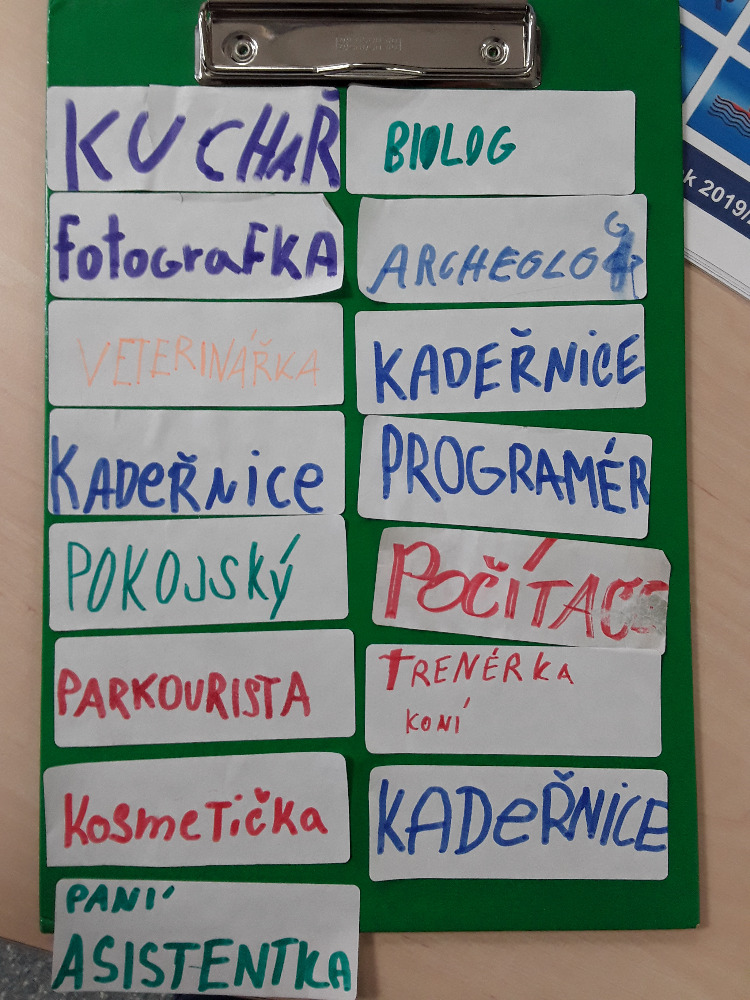 KUCHAŘ
fotografKA
VETERINÁŘKA
KADeŘNice
POKOJSKÝ
PARKOURISTA
KosmeTička
PANÍ
ASISTENTKA
BIOLOG
ARCHEOLOG
KADEŘNiCE
PROGRAMÉR
POČÍTAČE
TRENÉRKA
KONÍ
KADeŘNiCE
2019/